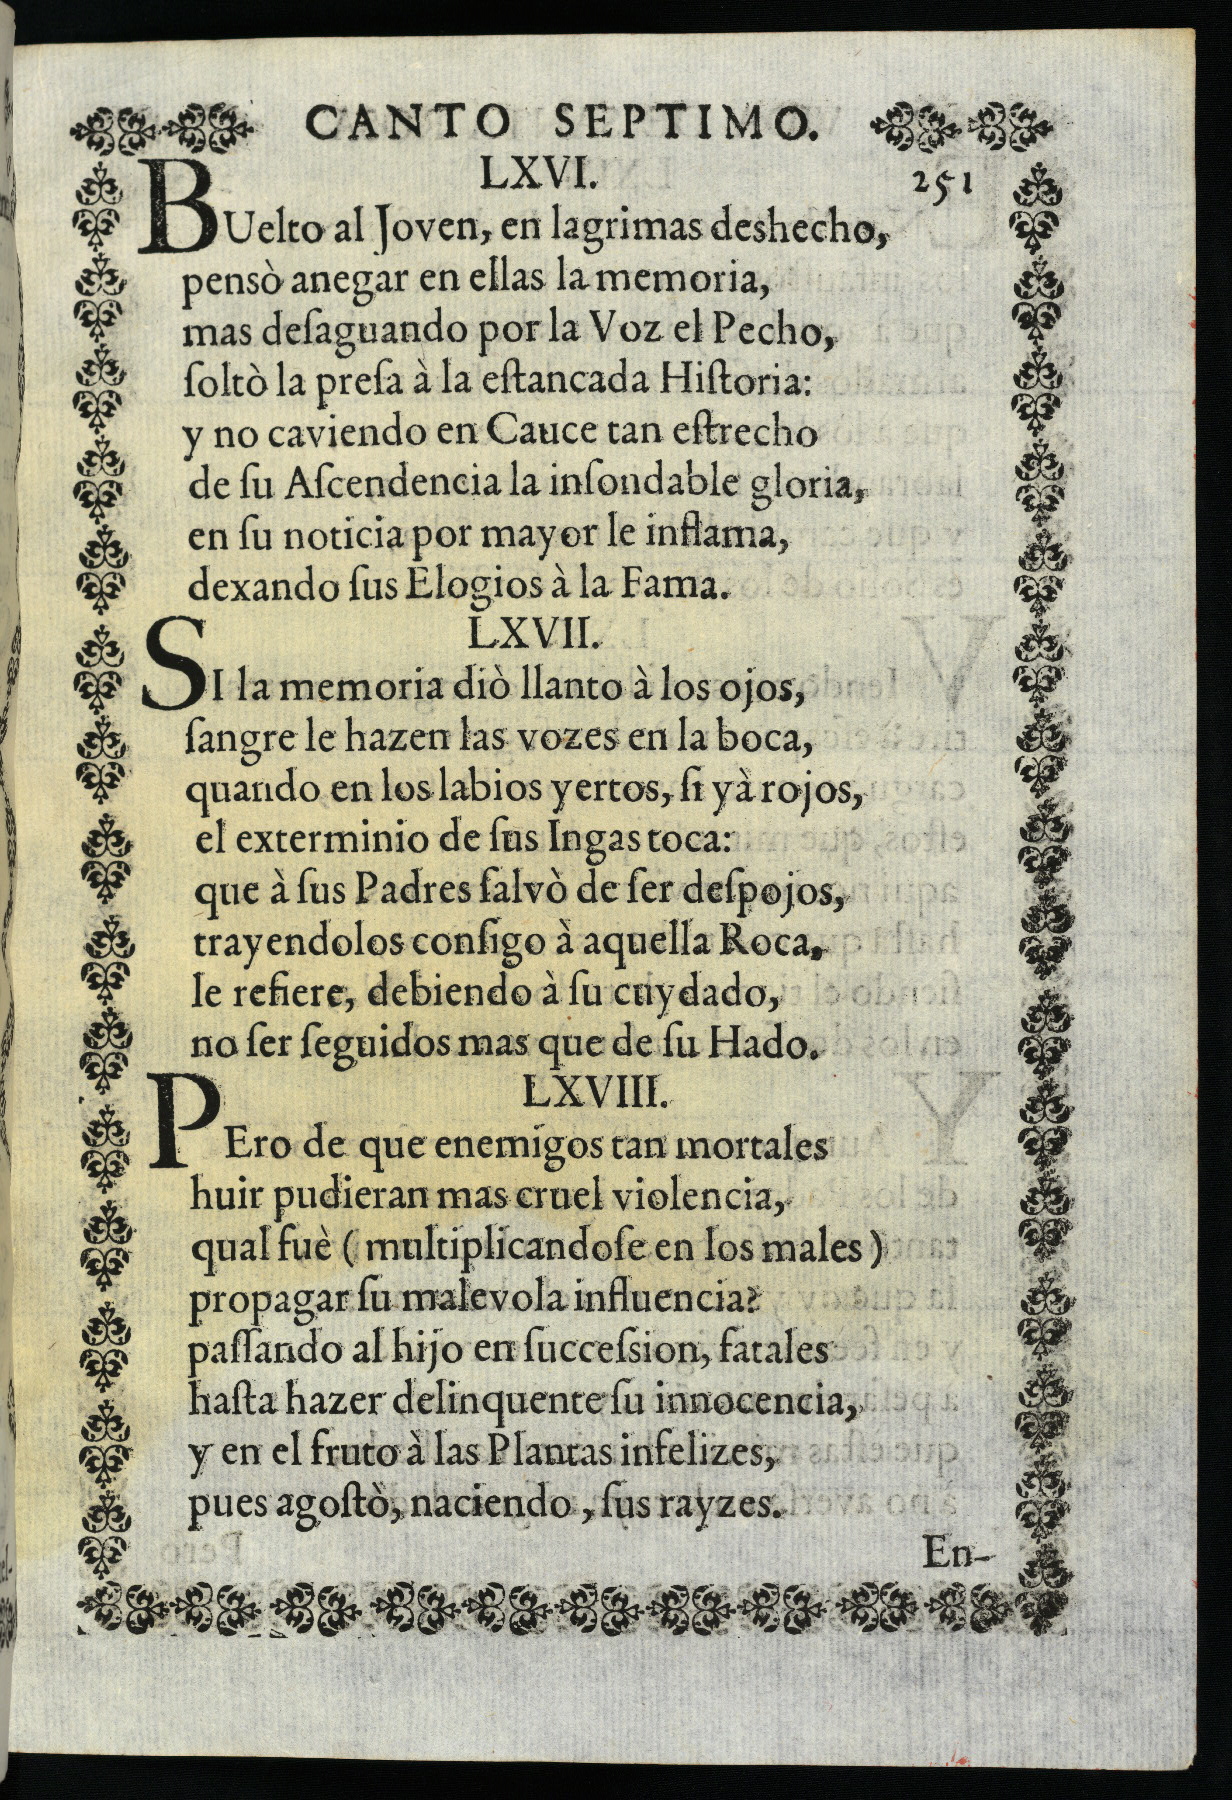 CANTO SEPTIMO.
LXVI.
251
BUelto al Joven, en lagrimas deshecho,
pensò anegar en ellas la memoria,
mas deſaguando por la Voz el Pecho,
ſoltò la preſa à la eſtancada Hiſtoria:
y no caviendo en Cauce tan eſtrecho
de ſu Aſcendencia la inſondable gloria,
en ſu noticia por mayor le inflama,
dexando ſus Elogios à la Fama.
LXVII.
SI la memoria diò llanto à los ojos,
ſangre le hazen las vozes en la boca,
quando en los labios yertos, ſi yà rojos,
el exterminio de ſus Ingas toca:
que à ſus Padres ſalvò de ſer deſpojos,
trayendolos conſigo à aquella Roca,
le refiere, debiendo à ſu cuydado,
no ſer ſeguidos mas que de ſu Hado.
LXVIII.
PEro de que enemigos tan mortales
huir pudieran mas cruel violencia,
qual fuè ( multiplicandoſe en los males )
propagar ſu malevola influencia?
paſſando al hijo en ſucceſsion, fatales
haſta hazer delinquente ſu innocencia,
y en el fruto à las Plantas infelizes,
pues agoſtò, naciendo, ſus rayzes.
En-